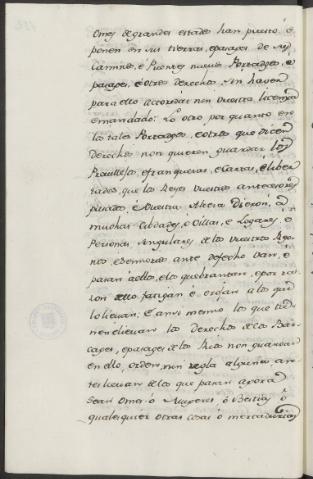 omes de grandes estados han puesto é
ponen en sus tierras, é pasages de sus
caminos, é Puentes nuevos Portadgos, é
pasages, é otros derechos, sin haver
para ello accordar non vuestra licencia
é mandado: Lo otro por quanto en
los tales Portadgos, é otros que dicen
derechos non quieren guardar los
Previllejos, é franquezas, é Cartas, é liber
tades, que los Reyes vuestros antecesores
pasados, é Vuestra Alteza Dieron, á
muchas Cibdades, é Villas, é Logares, é
Personas singulares de los vuestros Rey
nos é Senorios ante de fecho van, é
pasan á ellos, é los quebrantan, é por ra
zon dello fatigan é
lo lievan. E
nen é lievan los derechos de los Bar
cages, é pasages de los Rios non guardan
en ello, orden, nin regla alguna an
tes lievan de los que pasan agora
sean omes ó Mugeres, ó Bestias, ó
qualesquier otras cosas ó mercadurias